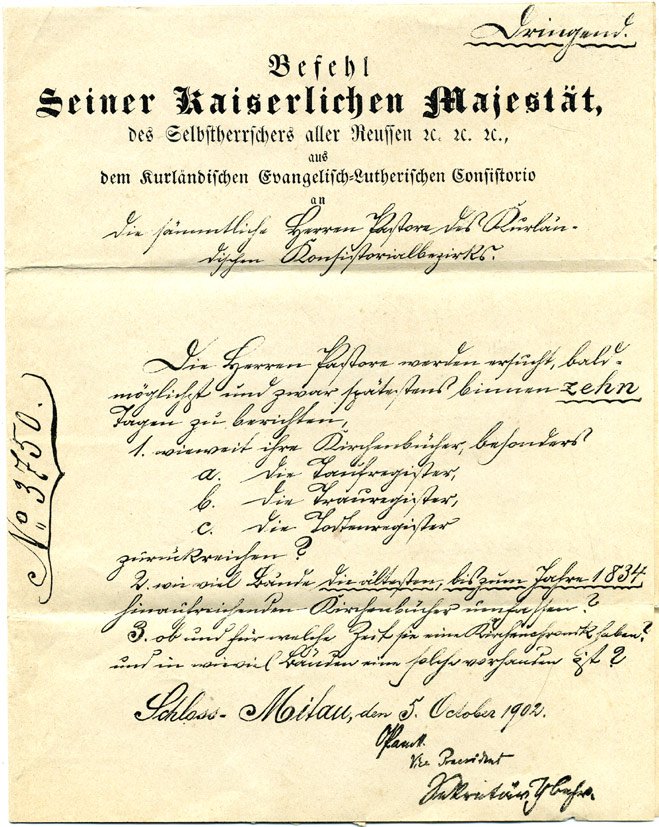 Dringend.
Befehl
Seiner Kaiserlichen Majestät,
des Selbstherrschers aller Reussen ꝛc. ꝛc. ꝛc.,
aus
dem Kurländischen Evangelisch-Lutherischen Consistorio
an
die sämmtliche Herren Pastore des Kurlän-
dischen Konsistorialbezirks.
Die Herren Pastore werden ersucht, bald-
möglichst und zwar spätestens binnen zehn
Tagen zu berichten,
1. wieweit ihre Kirchenbücher, besonders
a. die Taufregister,
b. die Trauregister,
c. die Todtenregister
zurückreichen?
2. wie viel Bände die ältesten, bis zum Jahre 1834
hinaufreichenden Kirchenbücher umfassen?
3. ob und für welche Zeit sie eine Kirchenchronik haben?
und in wieviel Bänden eine solche vorhanden ist?
No. 3750.
Schloss-Mitau, den 5. October 1902.
Vice Praesident
Sekretär